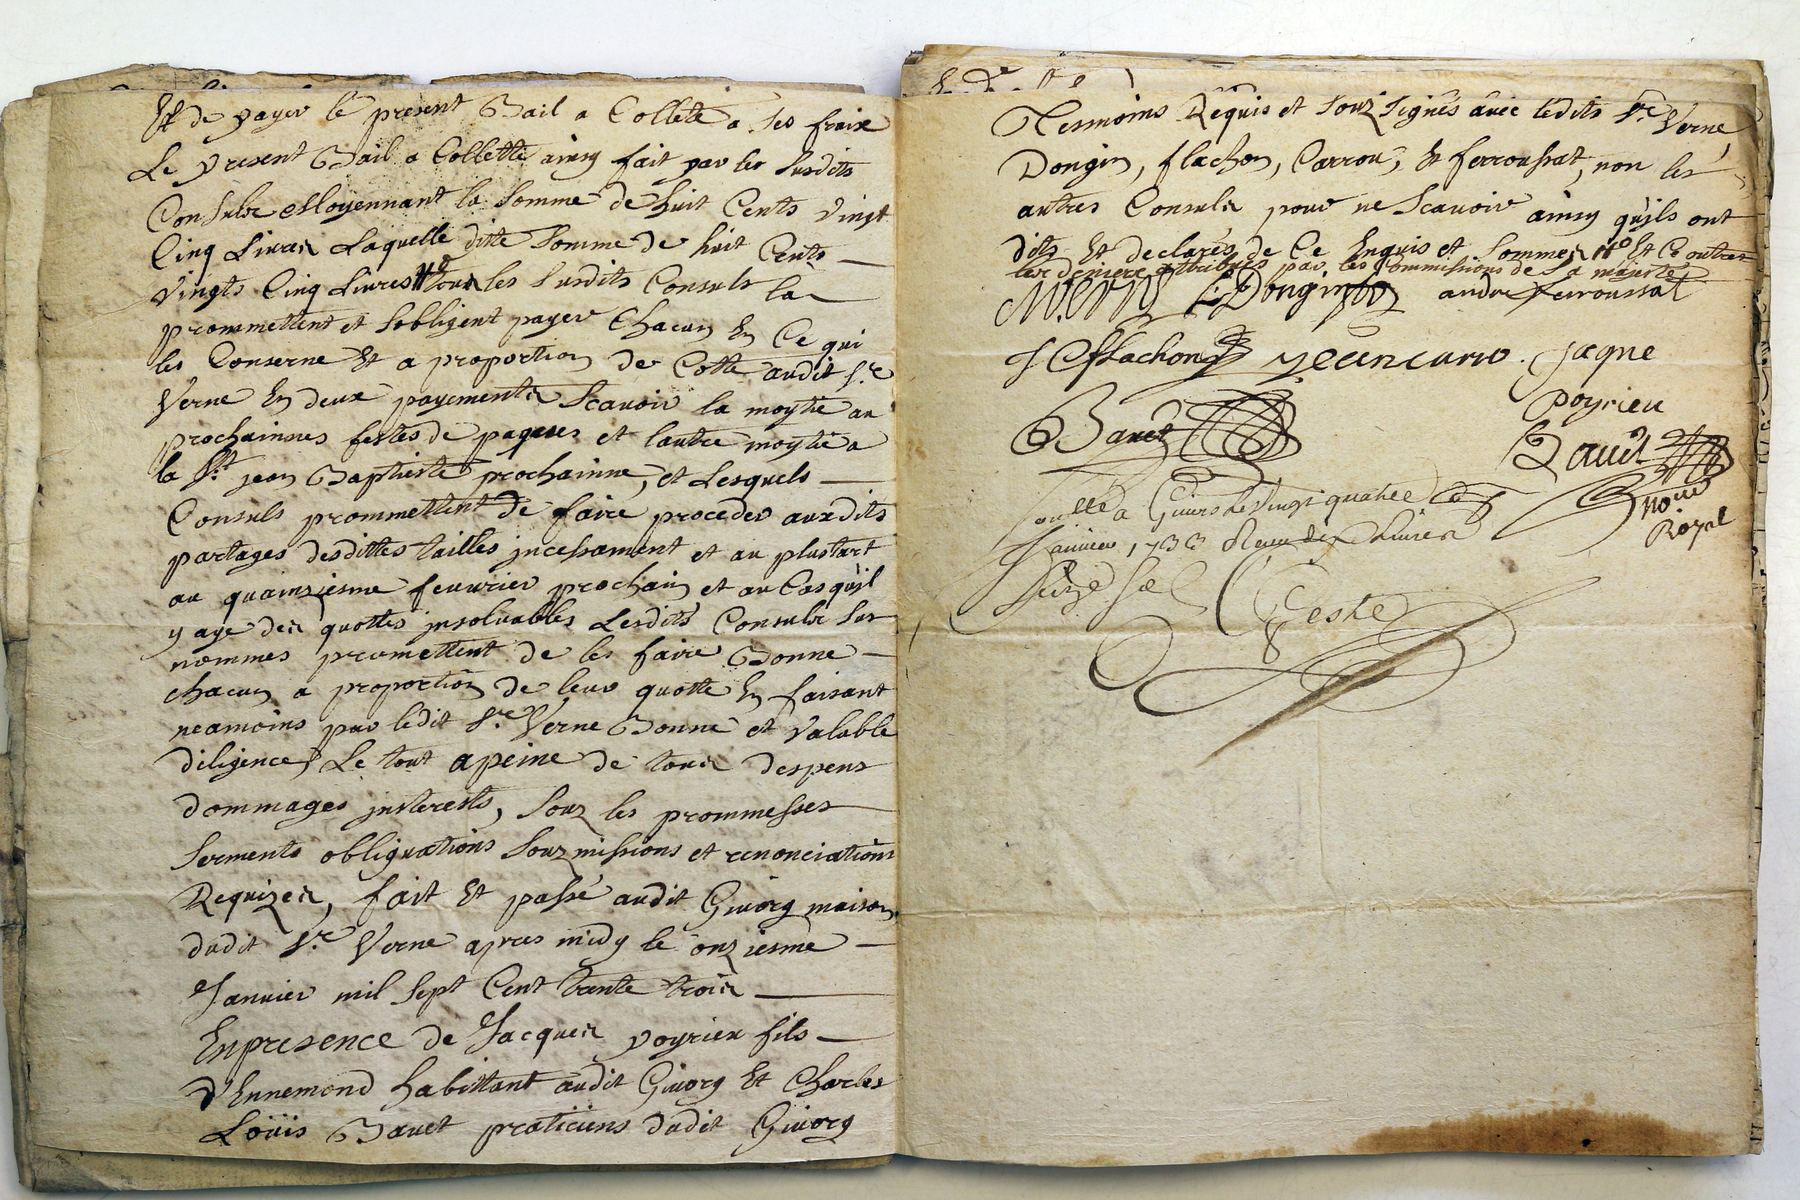 Et de payer le present Bail a Collette a ses fraix
Le present Bail a Collette ainsy fait par les susdits
Consulz Moyennant la somme de huit Cents vingt
Cinq Livres Laquelle ditte somme de huit Cents
vingts Cinq Livres tous les susdits Consuls la
prommettent et sobligent payer Chacun En Ce qui
les Conserne Et a proportion de Cotte audit Sr.
Verne En deux payements Scavoir la moytié au
prochainnes festes de paques et lautre moytié a
la St. jean Baptiste prochainne, et Lesquels
Consuls prommettent de faire proceder auxdits
partages desdittes tailles incessament et au plustart
au quainziesme feuvrier prochain et au Cas quil
y aye des quottes insoluables Lesdits Consulz sus
nommes promettent de les faire Bonne
chacun a proportion de leur quotte En faisant
neamoins par ledit Sr. Verne Bonne et valable
diligence, Le tout a peine de tous despens
dommages interests, souz les prommesses
serments obliguations souzmissions et renonciations
Requizes, fait Et passé audit Givorg maison
dudit Sr. Verne apres midy le onziesme
Janvier mil sept Cent trente trois
En presence de Jacques poyrieu fils
d'Ennemond habittant audit Givorg Et Charles
Loüis Bauet praticiens dudit Givorg
Tesmoins Requis et souz signés avec lédits Sr. Verne,
Dongin, flachon, Carrou, Et ferroussat, non les
autres Consuls pour ne scavoir ainsy quils ont
dits Et declarés de Ce Enquis et sommes Et Ce outre
les deniers attribués par les Commissions de sa majesté
M. Verne Dongin andre ferroussat
flachon jean caro. jaque
poyrieu
Bauet Bauet
Conllé a Givors le vingt quatre
janvier 1733 Receu dix Livres
seize
Geste
no.re
Royal